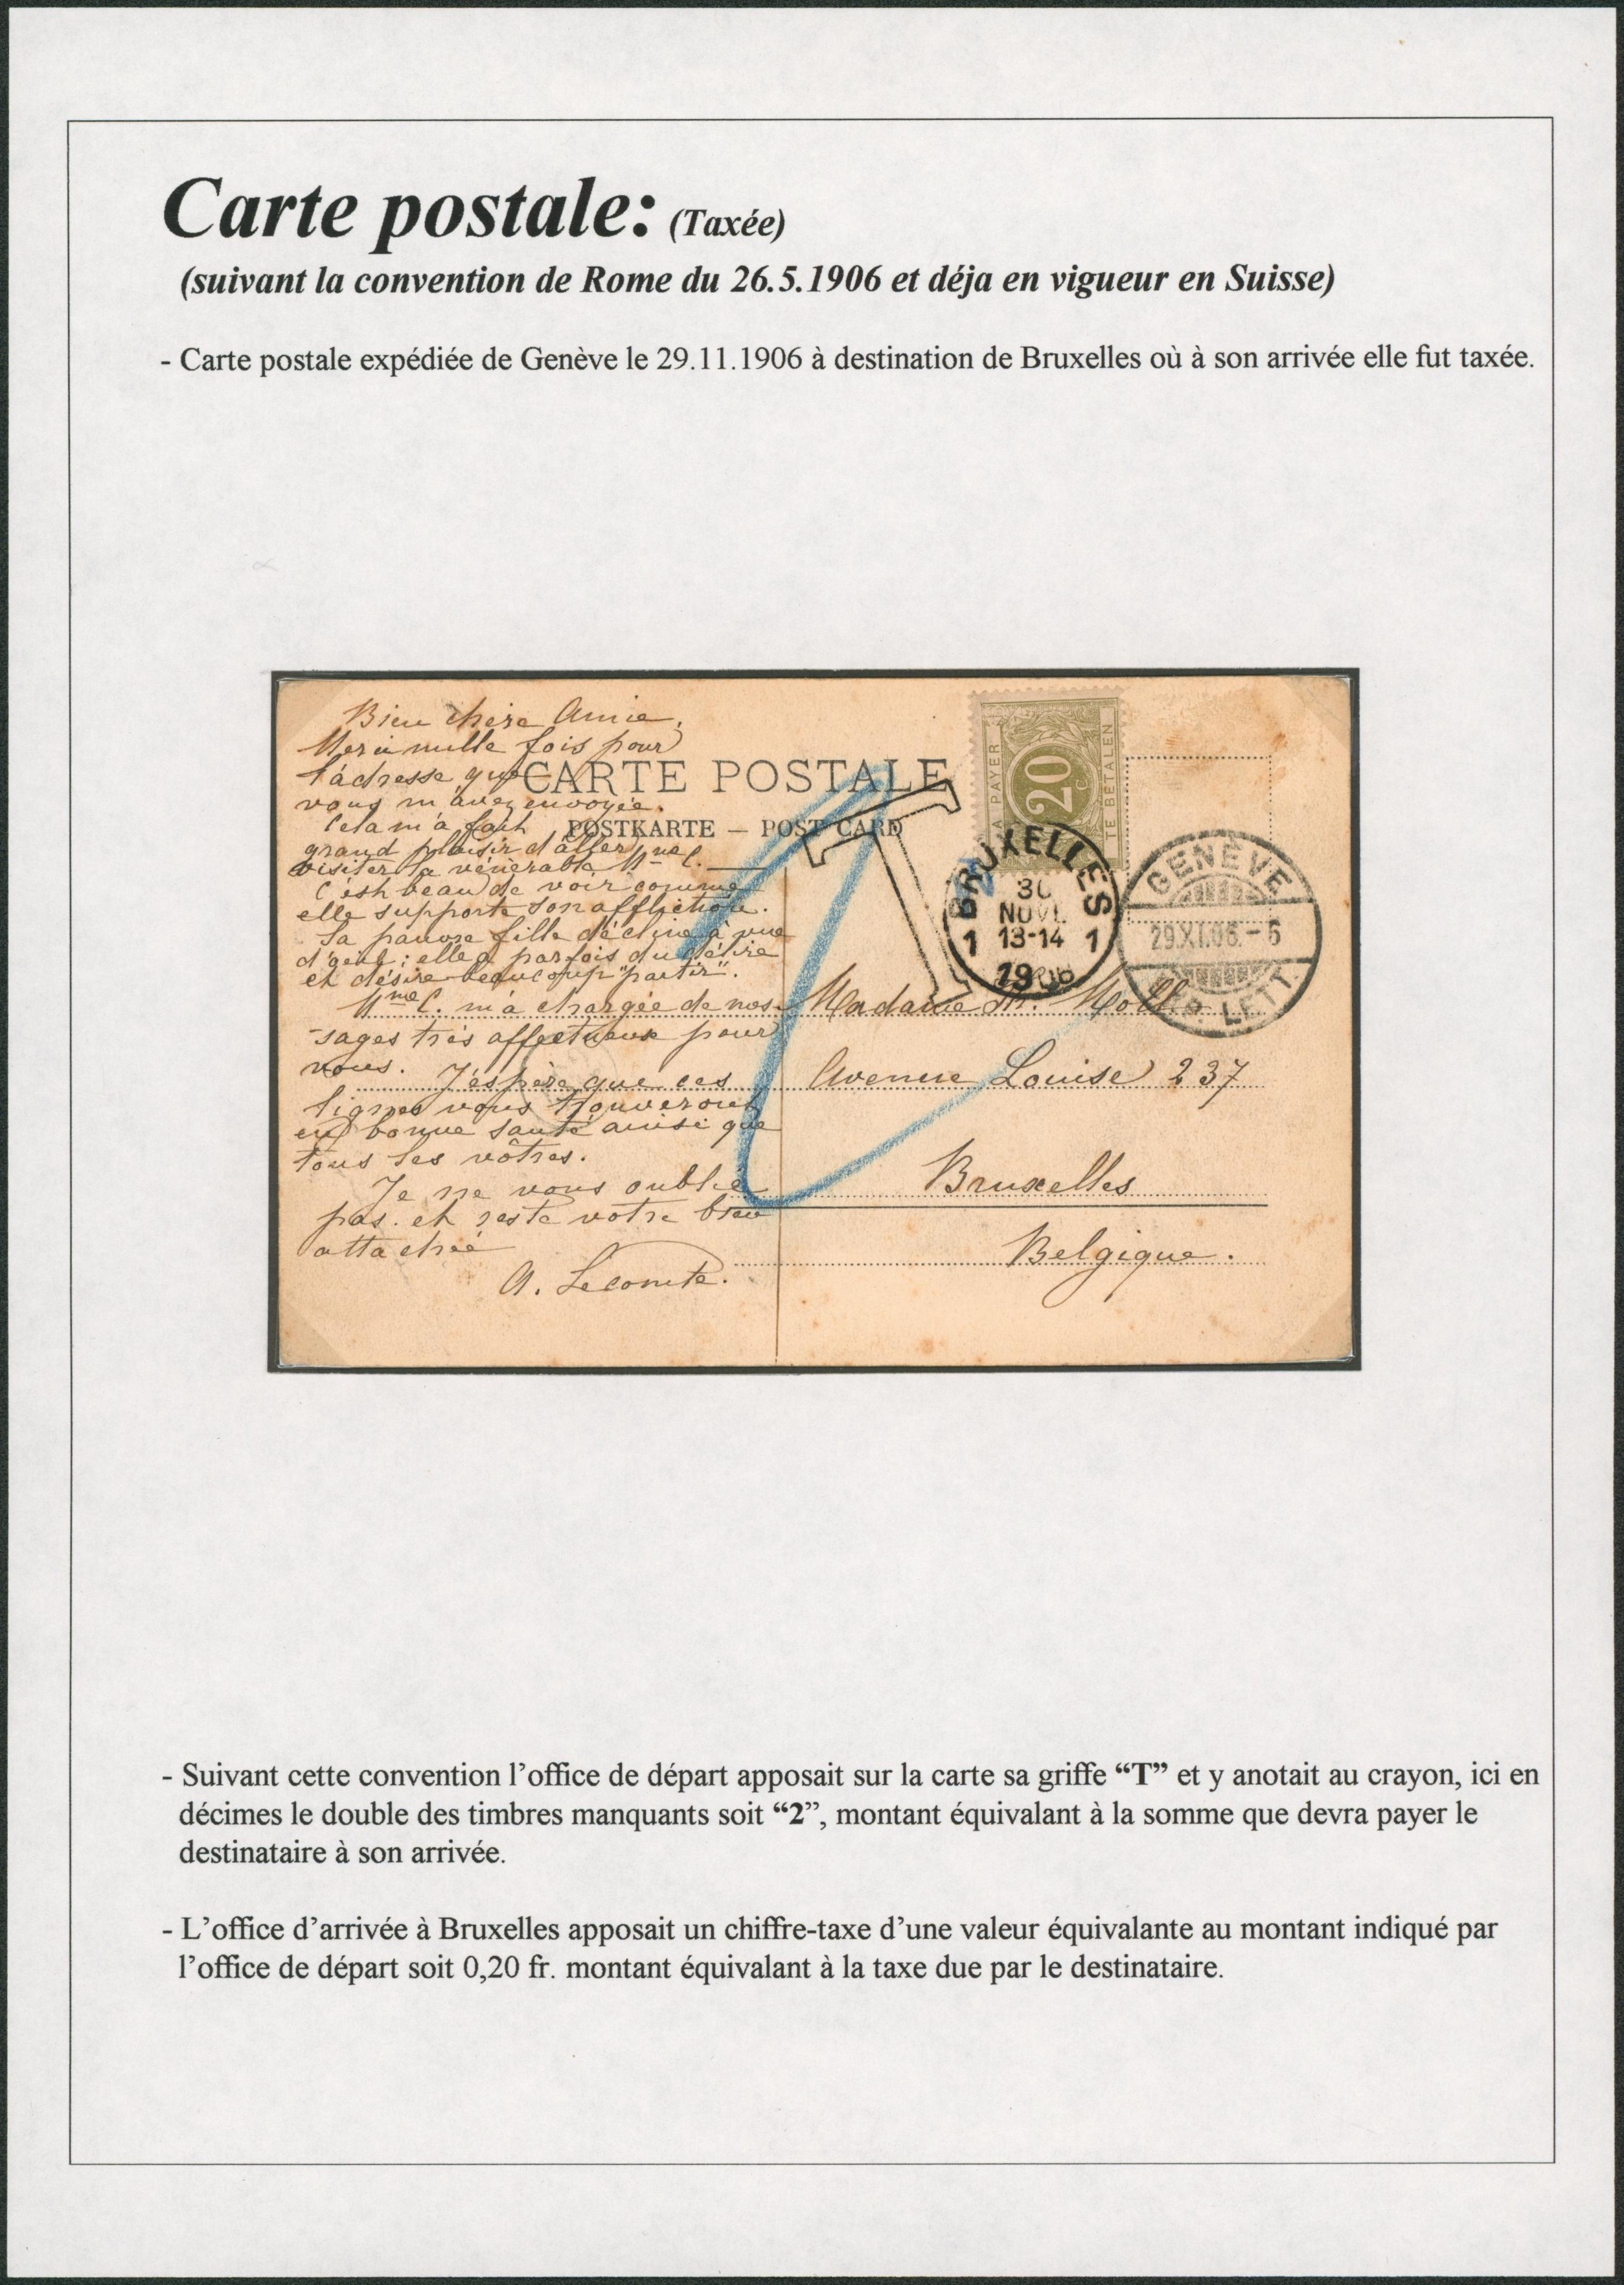 Carte postale: (Taxée)
(suivant la convention de Rome du 26.5.1906 et déja en vigueur en Suisse)
- Carte postale expédiée de Genève le 29.11.1906 à destination de Bruxelles où à son arrivée elle fut taxée.
Bien chère Amie,
Merci mille fois pour
l'adresse que
vous m'avez envoyée.
Cela m'a fait
grand plaisir d'aller
visiter la vénérable Mme C.
C'est beau de voir comme
elle supporte son affliction.
Sa pauvre fille décline à vue
d'œil; elle a parfois du délire
et désire beaucoup "partir".
Mme C. m'a chargée de mes-
sages très affectueux pour
vous. J'espère que ces
lignes vous trouveront
en bonne santé ainsi que
tous les vôtres.
Je ne vous oublie
pas. et reste votre bien
attachée
A. Lecomte.
CARTE POSTALE
POSTKARTE — POST CARD
T
A PAYER
20 c
TE BETALEN
BRUXELLES
30
NOV.
1 13-14 1
1906
GENÈVE
29.XI.06.-6
EXP. LETT.
Madame Moll
Avenue Louise 237
Bruxelles
Belgique.
- Suivant cette convention l’office de départ apposait sur la carte sa griffe “T” et y anotait au crayon, ici en
décimes le double des timbres manquants soit “2”, montant équivalant à la somme que devra payer le
destinataire à son arrivée.
- L’office d’arrivée à Bruxelles apposait un chiffre-taxe d’une valeur équivalante au montant indiqué par
l’office de départ soit 0,20 fr. montant équivalant à la taxe due par le destinataire.